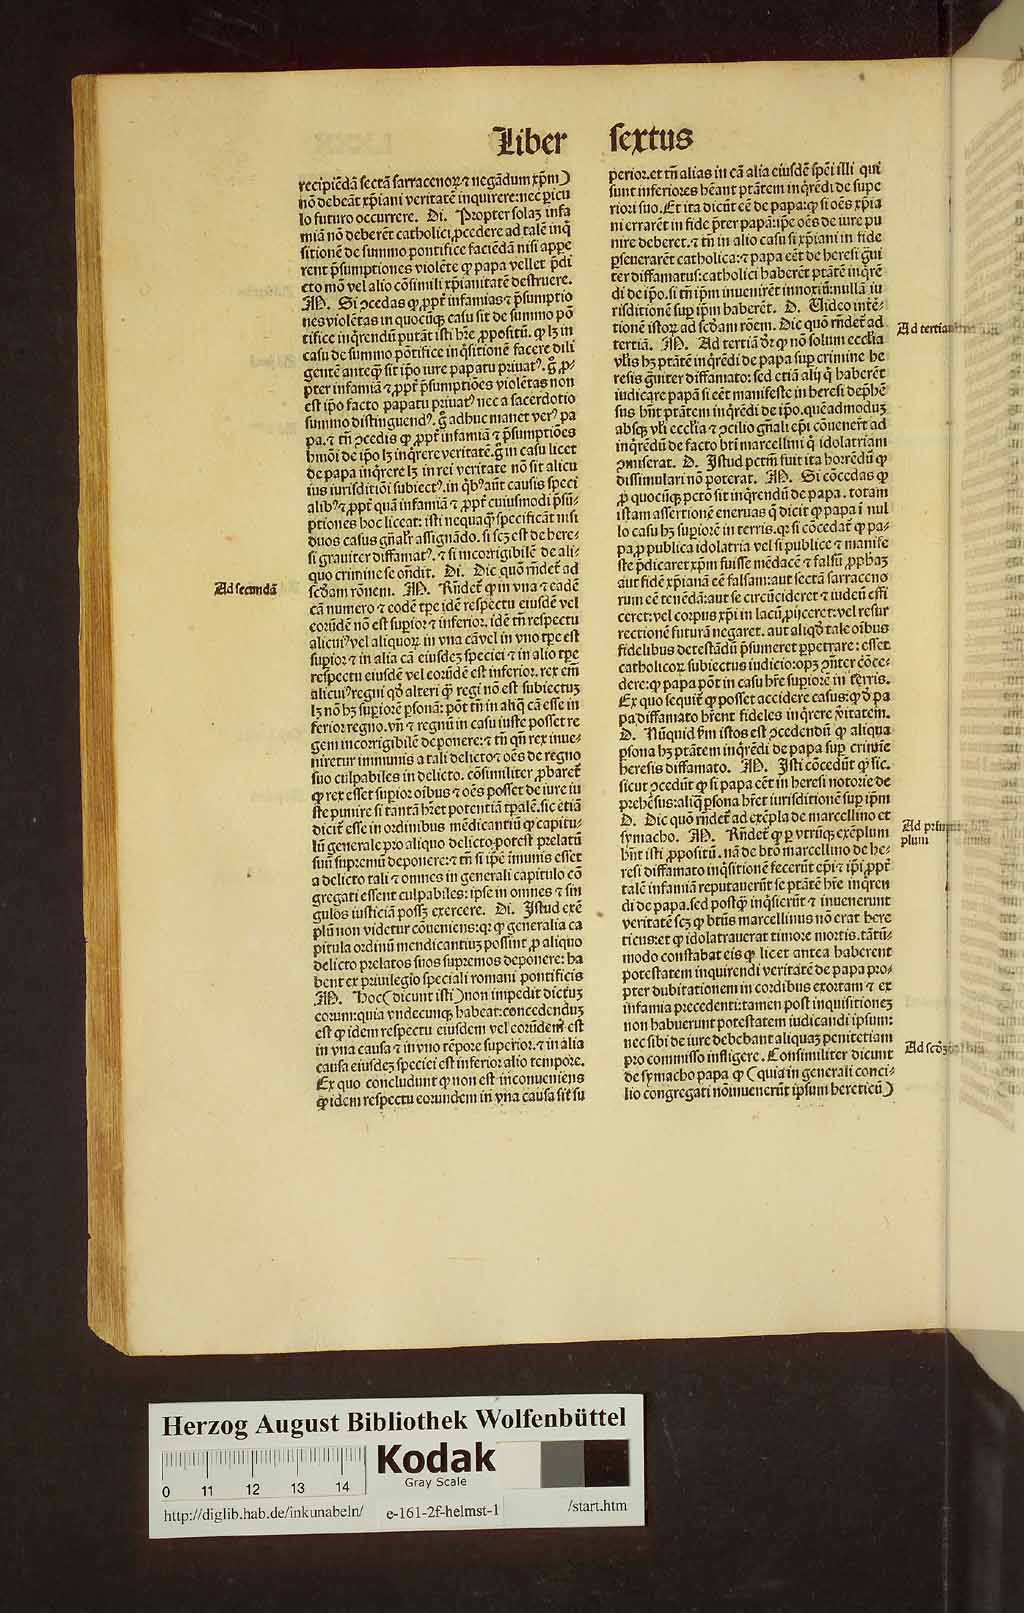 Liber sextus
recipiēdā sectā sarracenoꝝ ⁊ negādum xp̄m)
nō debeāt xp̄iani veritatē inquirere: nec ꝑicu
lo futuro occurrere. Di. Propter solaꝫ infa
miā nō deberēt catholici ꝓcedere ad talē inq̇
sitionē de summo pontifice faciēdā nisi appe
rent p̄sumptiones violēte ꝙ papa vellet p̄di
cto mō vel alio cōsimili xp̄ianitatē destruere.
M. Si ↄcedas ꝙ ꝓpt̄ infamias ⁊ p̄sumptio
nes violētas in quocūqꝫ casu sit de summo pō
tifice inq̇rendū putāt isti hr̄e ꝓpositū. ꝙ lꝫ in
casu de summo pōtifice inq̇sitionē facere dili
gentē anteq̄ꝫ sit ip̄o iure papatu priuatꝰ. g̊ ꝓ-
pter infamiā ⁊ ꝓpt̄ p̄sumptiōes violētas non
est ip̄o facto papatu priuatꝰ nec a sacerdotio
summo distinguendꝰ. g̊ adhuc manet verꝰ pa
pa. ⁊ tn̄ ↄcedis ꝙ ꝓpt̄ infamiā ⁊ p̄sumptiōes
hmōi de ip̄o lꝫ inq̇rere veritatē. g̊ in casu licet
de papa inq̇rere lꝫ in rei veritate nō sit alicu
ius iurisditiōi subiectꝰ. in q̇bꝰ aūt causis speci
alibꝰ ⁊ ꝓpt̄ quā infamiā ⁊ ꝓpt̄ cuiusmodi p̄sū-
ptiones hoc liceat: isti nequaq̄ꝫ specificāt nisi
duos casus gn̄alr̄ assignādo. si scꝫ est de here-
si grauiter diffamatꝰ. ⁊ si incorrigibilē de ali-
quo crimine se oñdit. Di. Dic quō rñdet̄ ad
Ad secundā
scd̄am rōnem. M. Rñdet̄ ꝙ in vna ⁊ eadē
cā numero ⁊ eodē tpe idē respectu eiusdē vel
eorūdē nō est suꝑior ⁊ inferior. idē tn̄ respectu
alicuiꝰ vel aliquoꝝ in vna cā vel in vno tpe est
suꝑior ⁊ in alia cā eiusdeꝫ speciei ⁊ in alio tpe
respectu eiusdē vel eorūdē est inferior. rex em̄
alicuiꝰ regni qđ alteri q̄ꝫ regi nō est subiectuꝫ
lꝫ nō hꝫ suꝑiorē ꝑsonā: pōt tn̄ in aliq̄ cā esse in
ferior regno. vn̄ ⁊ regnū in casu iuste posset re
gem incorrigibilē deponere: ⁊ tn̄ qn̄ rex inue-
niretur immunis a tali delicto ⁊ oēs de regno
suo culpabiles in delicto. cōsimiliter ꝓbaret̄
ꝙ rex esset suꝑior oībus ⁊ oēs posset de iure iu
ste punire si tantā hr̄et potentiā tꝑalē. sic etiā
dicit̄ esse in ordinibus mēdicantiū ꝙ capitu-
lū generale pro aliquo delicto potest prelatū
suū supremū deponere: ⁊ tn̄ si ip̄e īmunis esset
a delicto tali ⁊ omnes in generali capitulo cō
gregati essent culpabiles: ipse in omnes ⁊ sin
gulos iusticiā possꝫ exercere. Di. Istud exē
plū non videtur cōueniens: qꝛ ꝙ generalia ca
pitula ordinū mendicantiuꝫ possint ꝓ aliquo
delicto prelatos suos supremos deponere: ha
bent ex priuilegio speciali romani pontificis
M. Hoc (dicunt isti) non impedit dictuꝫ
eorum: quia vndecunqꝫ habeat: concedenduꝫ
est ꝙ idem respectu eiusdem vel eorūdem est
in vna causa ⁊ in vno tēpore superior. ⁊ in alia
causa eiusdeꝫ speciei est inferior alio tempore.
Ex quo concludunt ꝙ non est inconueniens
ꝙ idem respectu eorundem in vna causa sit su
perior. et tn̄ alias in cā alia eiusdē spēi illi qui
sunt inferiores hēant ptātem inq̇rēdi de supe
riori suo. Et ita dicūt eē de papa: ꝙ si oēs xp̄ia
ni errarēt in fide p̄ter papā: ip̄e oēs de iure pu
nire deberet. ⁊ tn̄ in alio casu si xp̄iani in fide
ꝑseuerarēt catholica: ⁊ papa eēt de heresi g̊ui
ter diffamatus: catholici haberēt ptātē inq̇rē
di de ip̄o. si tn̄ ip̄m inuenirēt innoriū: nullā iu
risditionē suꝑ ip̄m haberēt. D. Uideo intē-
tionē istoꝝ ad scd̄am rōem. Dic quō rñdet̄ ad
Ad tertiam
tertiā. M. Ad tertiā dr̄ ꝙ nō solum ecclia
vlis hꝫ ptātē inq̇rēdi de papa suꝑ crimine he
resis g̊uiter diffamato: sed etiā alij q̇ haberēt
iudicare papā si eēt manifeste in heresi dep̄hē
sus hn̄t ptātem inq̇rēdi de ip̄o. quēadmoduꝫ
absqꝫ vli ecclia ⁊ ↄcilio gn̄ali epi cōuenert̄ ad
inq̇rēdū de facto bti marcellini q̇ idolatriam
ↄmiserat. D. Istud pctm̄ fuit ita horrēdū ꝙ
dissimulari nō poterat. M. Si cōcedas ꝙ
ꝓ quocūqꝫ pctō sit inq̇rendū de papa. totam
istam assertionē eneruas q̄ dicit ꝙ papa ī nul
lo casu hꝫ suꝑiorē in terris. qꝛ si cōcedat̄ ꝙ pa-
pa ꝓ publica idolatria vel si publice ⁊ manife
ste p̄dicaret xp̄m fuisse mēdacē ⁊ falsū ꝓphaꝫ
aut fidē xp̄ianā eē falsam: aut sectā sarraceno
rum eē tenēdā: aut se circūcideret ⁊ iudeū effi
ceret: vel corpus xp̄i in lacū ꝓijceret: vel resur
rectionē futurā negaret. aut aliqđ tale oībus
fidelibus detestādū p̄sumeret ꝑpetrare: esset
catholicoꝝ subiectus iudicio: opꝫ ↄn̄ter cōce-
dere: ꝙ papa pōt in casu hr̄e suꝑiorē in terris.
Ex quo sequit̄ ꝙ posset accidere casus: ꝙ đ pa
pa diffamato hr̄ent fideles inq̇rere v̄itatem.
D. Nūquid fm istos est ↄcedendū ꝙ aliqua
ꝑsona hꝫ ptātem inq̇rēdi de papa suꝑ crimīe
heresis diffamato. M. Isti cōcedūt ꝙ sic.
sicut ↄcedūt ꝙ si papa eēt in heresi notorie de
prehēsus: aliq̄ ꝑsona hr̄et iurisditionē suꝑ ip̄m
D. Dic quō rñdet̄ ad exēpla de marcellino et
Ad primum
plum
symacho. M. Rñdet̄ ꝙ ꝑ vtrūqꝫ exēplum
hn̄t isti ꝓpositū. nā de bto marcellino de he-
resi diffamato inq̇sitionē fecerūt epi ⁊ ip̄i ꝓpt̄
talē infamiā reputauerūt se ptātē hr̄e inq̇ren
di de papa. sed postq̄ꝫ inq̇sierūt ⁊ inuenerunt
veritatē scꝫ ꝙ btūs marcellinus nō erat here
ticus: et ꝙ idolatrauerat timore mortis. tātū-
modo constabat eis ꝙ licet antea haberent
potestatem inquirendi veritatē de papa pro-
pter dubitationem in cordibus exortam ⁊ ex
infamia precedenti: tamen post inquisitioneꝫ
non habuerunt potestatem iudicandi ipsum:
nec sibi de iure debebant aliquaꝫ penitetiam
Ad scd̄ꝫ
pro commisso infligere. Consimiliter dicunt
de symacho papa ꝙ (quia in generali conci-
lio congregati nō inuenerūt ip̄sum hereticū)
Herzog August Bibliothek Wolfenbüttel
Kodak
Gray Scale
0 11 12 13 14
http://diglib.hab.de/inkunabeln/ e-161-2f-helmst-1 /start.htm